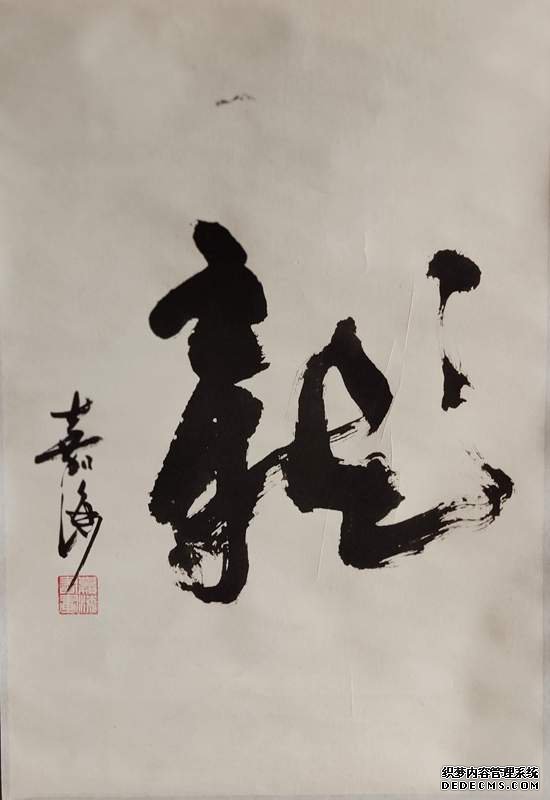 龍
嘉海
织梦内容管理系统
DEDECMS.COM